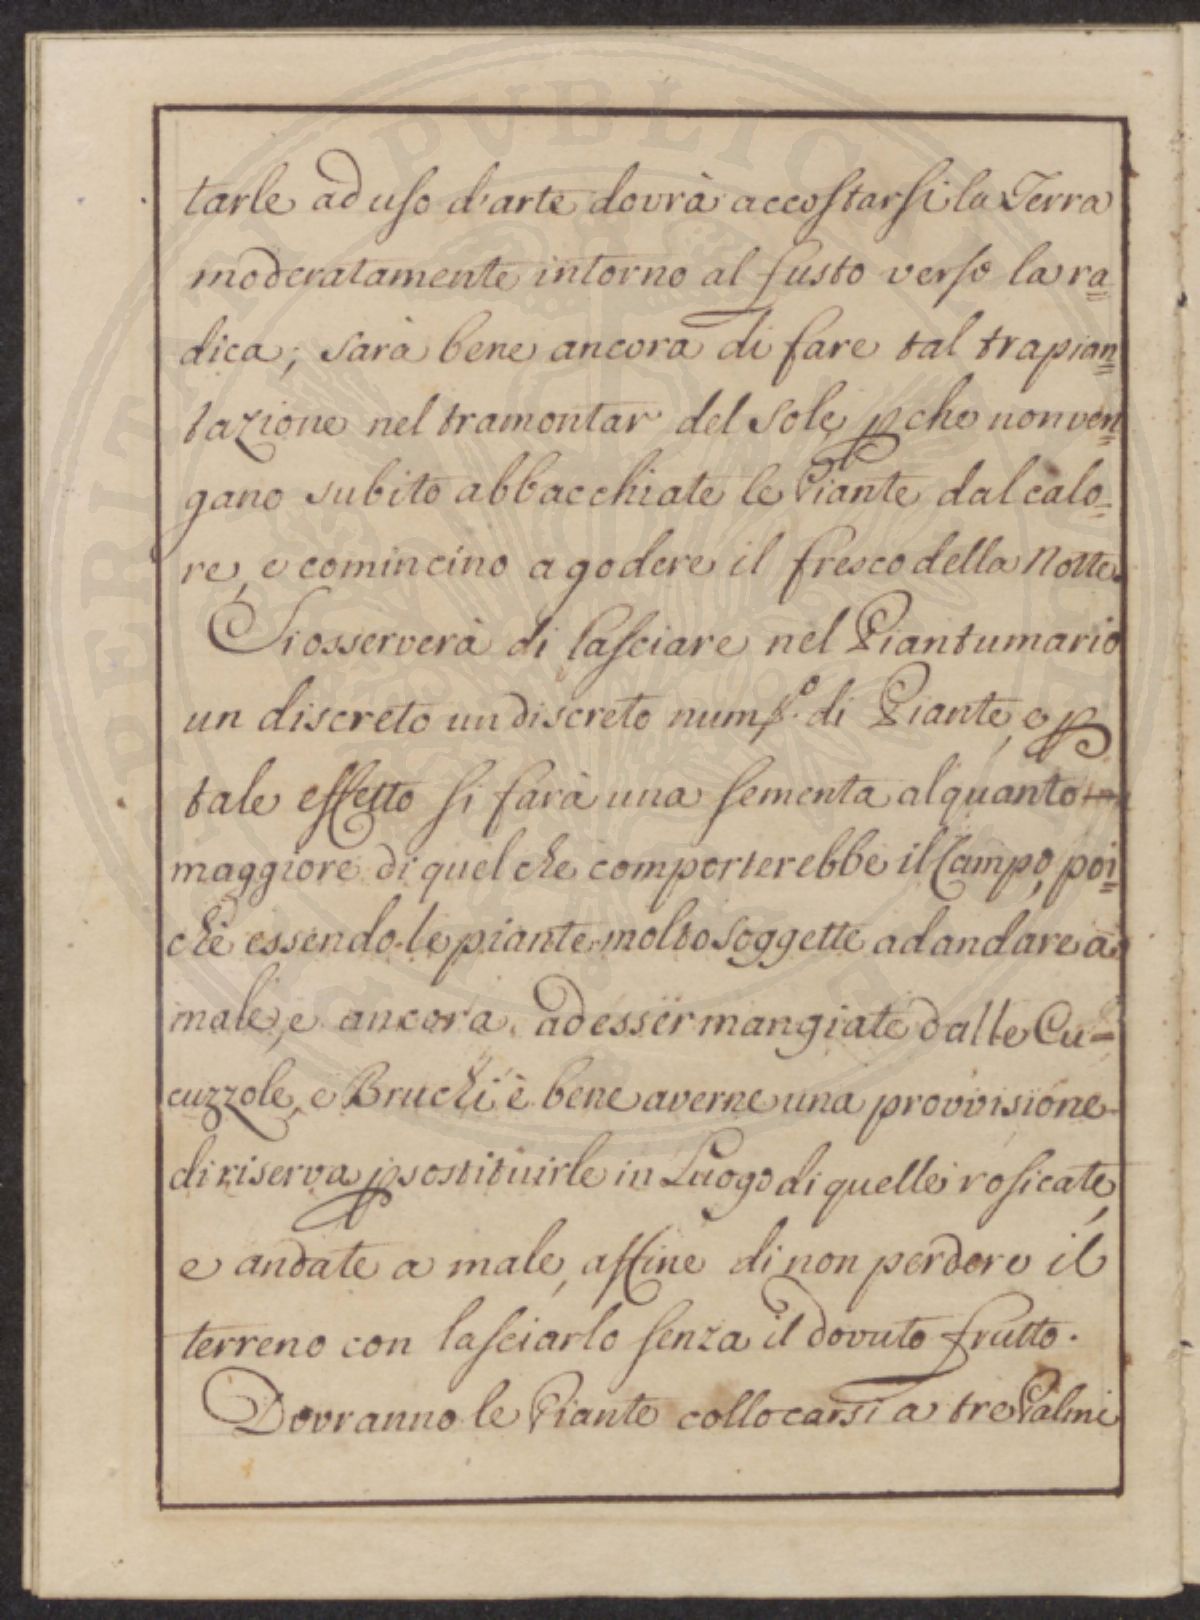 tarle ad uso d'arte dovrà accostarsi la Terra
moderatamente intorno al fusto verso la ra=
dica; sarà bene ancora di fare tal trapian=
tazione nel tramontar del Sole, pche non ven=
gano subito abbacchiate le Piante dal calo=
re, e comincino a godere il fresco della Notte.
Si osserverà di lasciare nel Piantumario
un discreto un discreto num.o di Piante, e p
tale effetto si farà una sementa alquanto
maggiore di quel che comporterebbe il Campo, poi=
che essendo le piante molto soggette ad andare a
male, e ancora ad esser mangiate dalle Cu=
cuzzole, e Bruchi è bene averne una provvisione
di riserva p sostituirle in Luogo di quelle rosicate,
e andate a male, affine di non perdere il
terreno con lasciarlo senza il dovuto frutto.
Dovranno le Piante collocarsi a tre Palmi